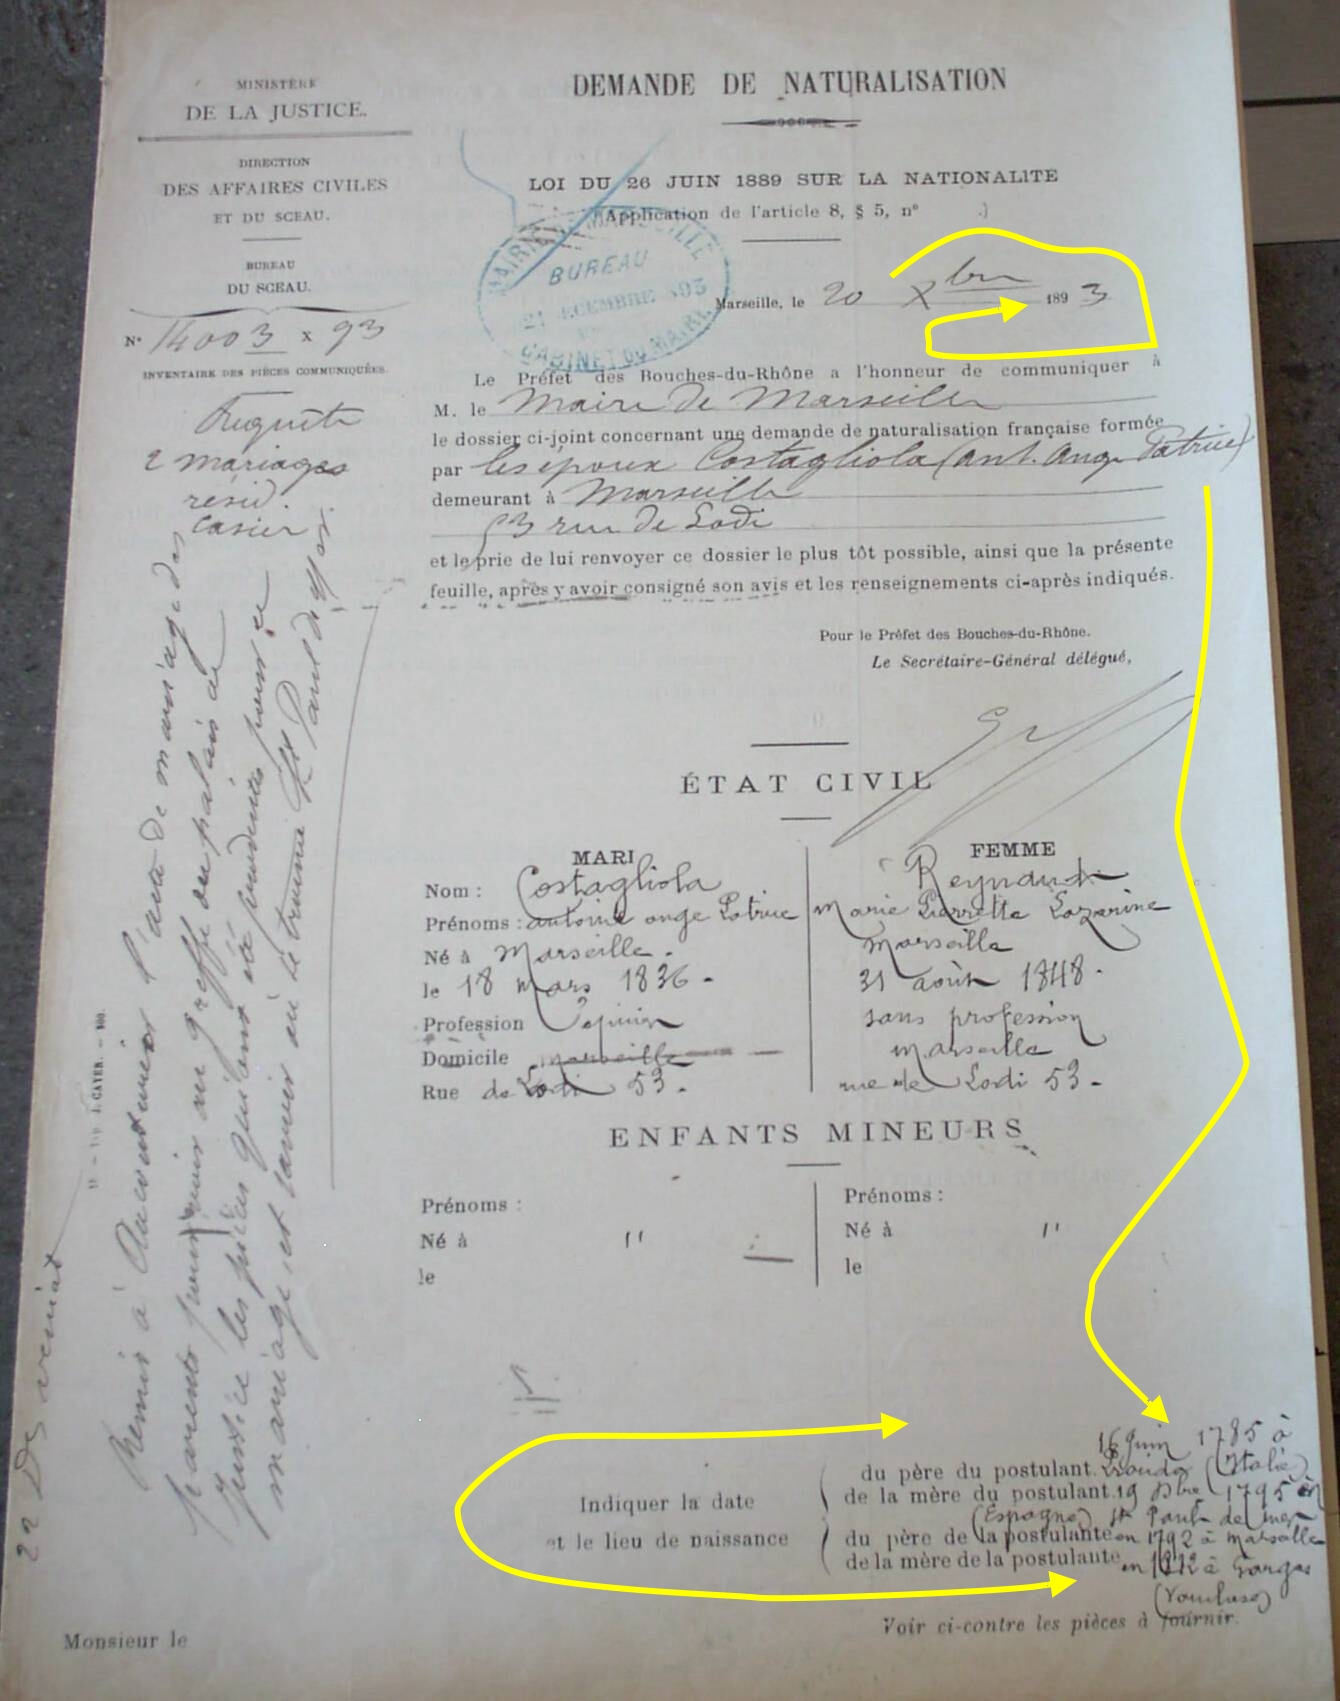 MINISTÈRE
DE LA JUSTICE.
DIRECTION
DES AFFAIRES CIVILES
ET DU SCEAU.
BUREAU
DU SCEAU.
N° 14003 x 93
INVENTAIRE DES PIÈCES COMMUNIQUÉES.
Requête
2 mariages
résid.
casier
DEMANDE DE NATURALISATION
LOI DU 26 JUIN 1889 SUR LA NATIONALITE
(Application de l'article 8, § 5, n° .)
MAIRIE DE MARSEILLE
BUREAU
21 DECEMBRE 1893
CABINET DU MAIRE
Marseille, le 20 Xbre 1893
Le Préfet des Bouches-du-Rhône a l'honneur de communiquer à
M. le Maire de Marseille
le dossier ci-joint concernant une demande de naturalisation française formée
par les époux Costagliola (Ant. Ange Patrice)
demeurant à Marseille
53 rue de Lodi
et le prie de lui renvoyer ce dossier le plus tôt possible, ainsi que la présente
feuille, après y avoir consigné son avis et les renseignements ci-après indiqués.
Pour le Préfet des Bouches-du-Rhône.
Le Secrétaire-Général délégué,
ÉTAT CIVIL
MARI
Nom : Costagliola
Prénoms : antoine ange Patrice
Né à Marseille.
le 18 Mars 1836.
Profession
Domicile Marseille
Rue de Lodi 53.
FEMME
Marie Pierrette Lazarine
Marseille
31 août 1848.
sans profession
Marseille
rue de Lodi 53.
ENFANTS MINEURS
Prénoms :
Né à "
le
Prénoms :
Né à "
le
Indiquer la date
et le lieu de naissance
16 Juin 1785 à
du père du postulant. (Italie)
de la mère du postulant. 19 1795 à
(Espagne) St Paul de mer
du père de la postulante en 1792 à Marseille
de la mère de la postulante en 1812 à Gargas
(Vaucluse)
Voir ci-contre les pièces à fournir.
Monsieur le
Remis à l'acte de mariage des
parents pour au greffe du palais de
Justice les pièces qui ont été produites pour ce
mariage, et savoir où se trouve St Paul de Mar